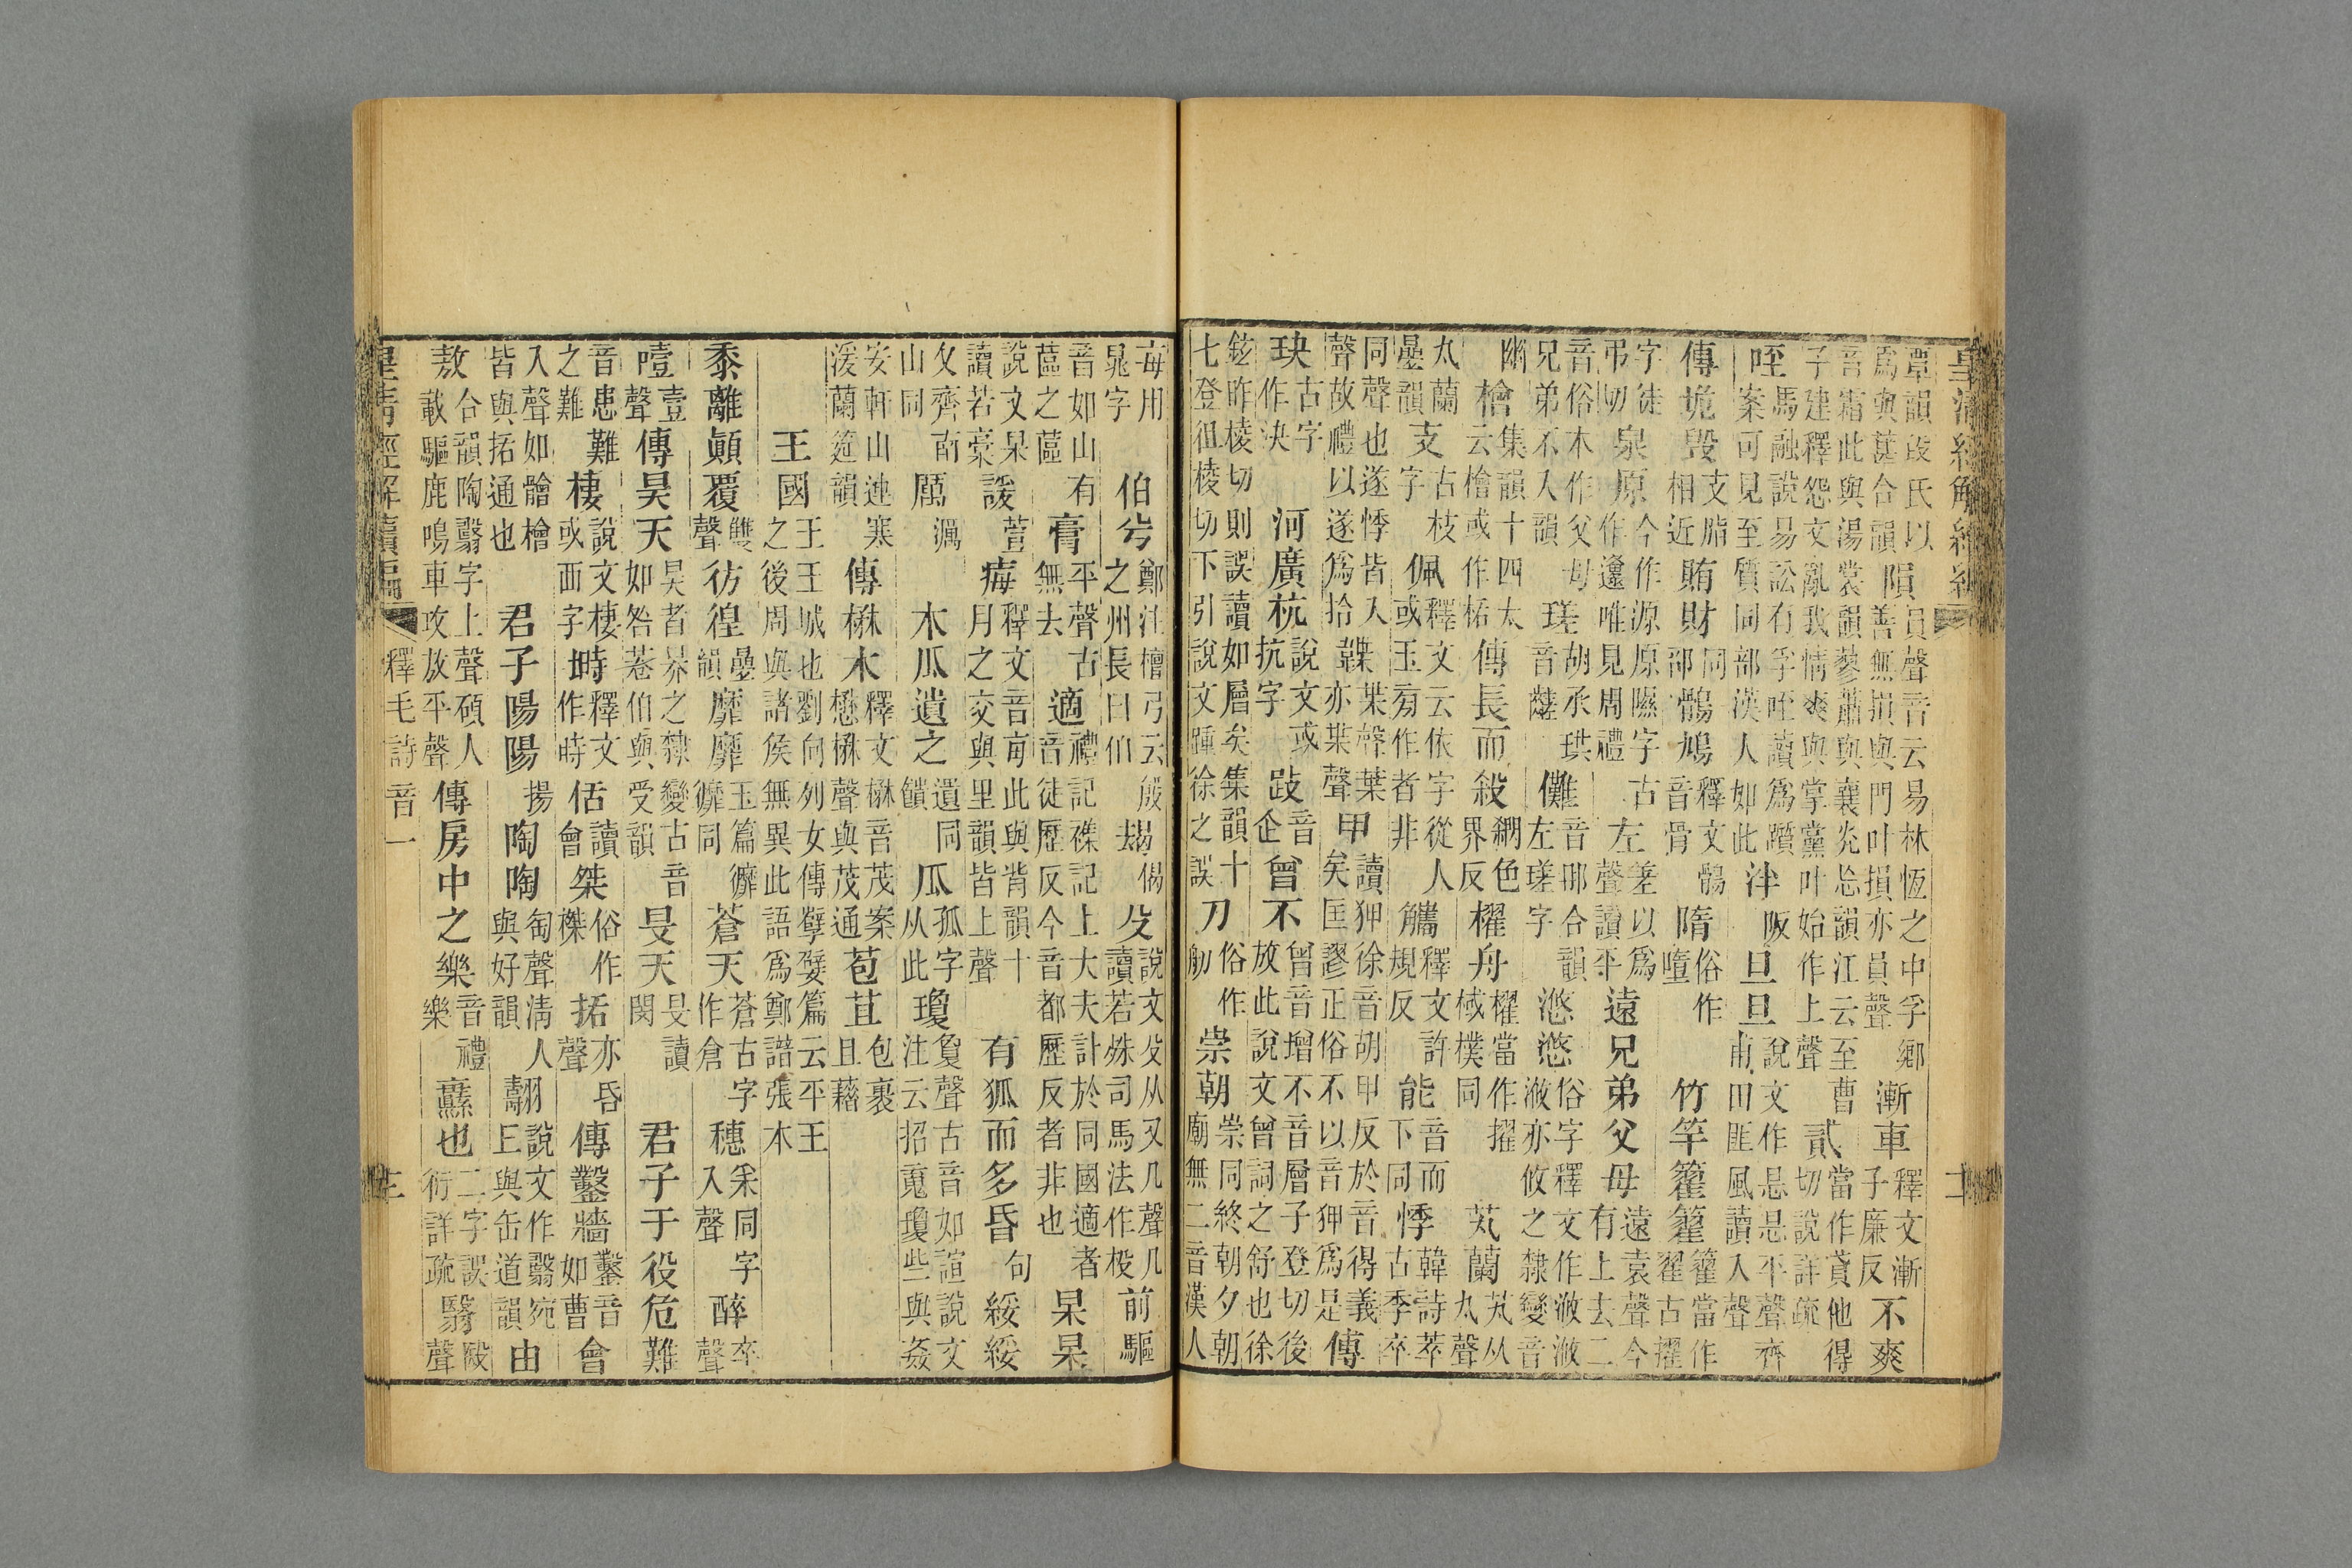 皇清經解續編
覃韻段氏以爲與葚合韻隕員聲音云易林恆之中孚鄉善無隕與門叶損亦員聲漸車釋文漸子廉反不爽
音霜此與湯裳韻蓼蕭與襄韻江云至曹子建釋怨文亂我情爽與掌黨叶始作上聲貳當作貣他得切說詳疏
咥馬融說易訟有孚咥讀爲躓案可見至質同部漢人如此泮阪旦旦說文作㫜㫜平聲齊甫田匪風讀入聲
傳垝毀支脂相近賄財同部鶻鳩釋文鶻音骨隋俗作墮竹竿籊籊籊當作翟古擢
字徒弔切泉原今作源原隰字古作邍唯見周禮左差以爲聲讀平遠兄弟父母遠袁聲今有上去二
音俗本作父母兄弟不入韻瑳胡承珙音儺音那合韻左瑳字滺滺俗字釋文作浟浟浟亦攸之隸變音
幽檜集韻十四太云檜或作栝傳長而殺網色界反櫂舟櫂當作擢棫樸同芄蘭芄从丸聲
丸蘭曡韻支古枝字佩釋文云依字從人或玉旁作者非觿釋文許規反能音而下同悸韓詩萃古季卒
同聲也遂悸皆入聲故禮以遂爲拾韘枼聲葉亦枼聲甲讀狎徐音胡甲反於音得義矣匡謬正俗不以音狎爲是傳
玦古字作決河廣杭說文或抗字跂音企曾不曾音增不音層子登切後放此說文曾詞之舒也徐
鉉昨棱切則誤讀如層矣集韻十七登徂棱切下引說文踵徐之誤刀俗作舠崇朝崇同終朝夕朝廟無二音漢人
每用鼂字伯兮鄭注檀弓云殷之州長曰伯朅偈殳說文殳从又几聲几讀若殊司馬法作杸前驅
音如山有蓲之蓲膏平聲古無去適禮記襍記上大夫計於同國適者音徒歷反今音都歷反者非也杲杲
說文杲讀若槀諼萱痗釋文音每此與背韻十月之交與里韻皆上聲有狐而多昏句綏綏
夂齊南山同厲濿木瓜遺之遺同饋瓜孤字从此瓊敻聲古音如諠說文注云招䰟瓊些與姦
安軒山連寒湲蘭筵韻傳楙木釋文楙音茂案懋楙聲與茂通苞苴包裹且藉
王國王王城也劉向列女傳孽嬖篇云平王之後周與諸侯無異此語爲鄭譜張本
黍離顚覆雙聲彷徨曡韻靡靡玉篇䊳䊳同蒼天蒼古字作倉穗采同字入聲醉卒聲
噎壹聲傳昊天昊者昦之隸變古音如咎菤伯與受韻旻天旻讀閔君子于役危難
音患之難難棲說文棲或西字塒釋文作時佸讀會桀俗作榤括亦昏聲傳鑿牆鑿音如曹會
入聲如䯤檜皆與括通也君子陽陽揚陶陶匋聲淸人與好韻翿說文作翳宛丘與缶道韻由
敖合韻陶翿字上聲碩人載驅鹿鳴車攻放平聲傳房中之樂音禮樂纛也二字誤衍詳疏翳殹聲
皇清經解續編 釋毛詩音一 三